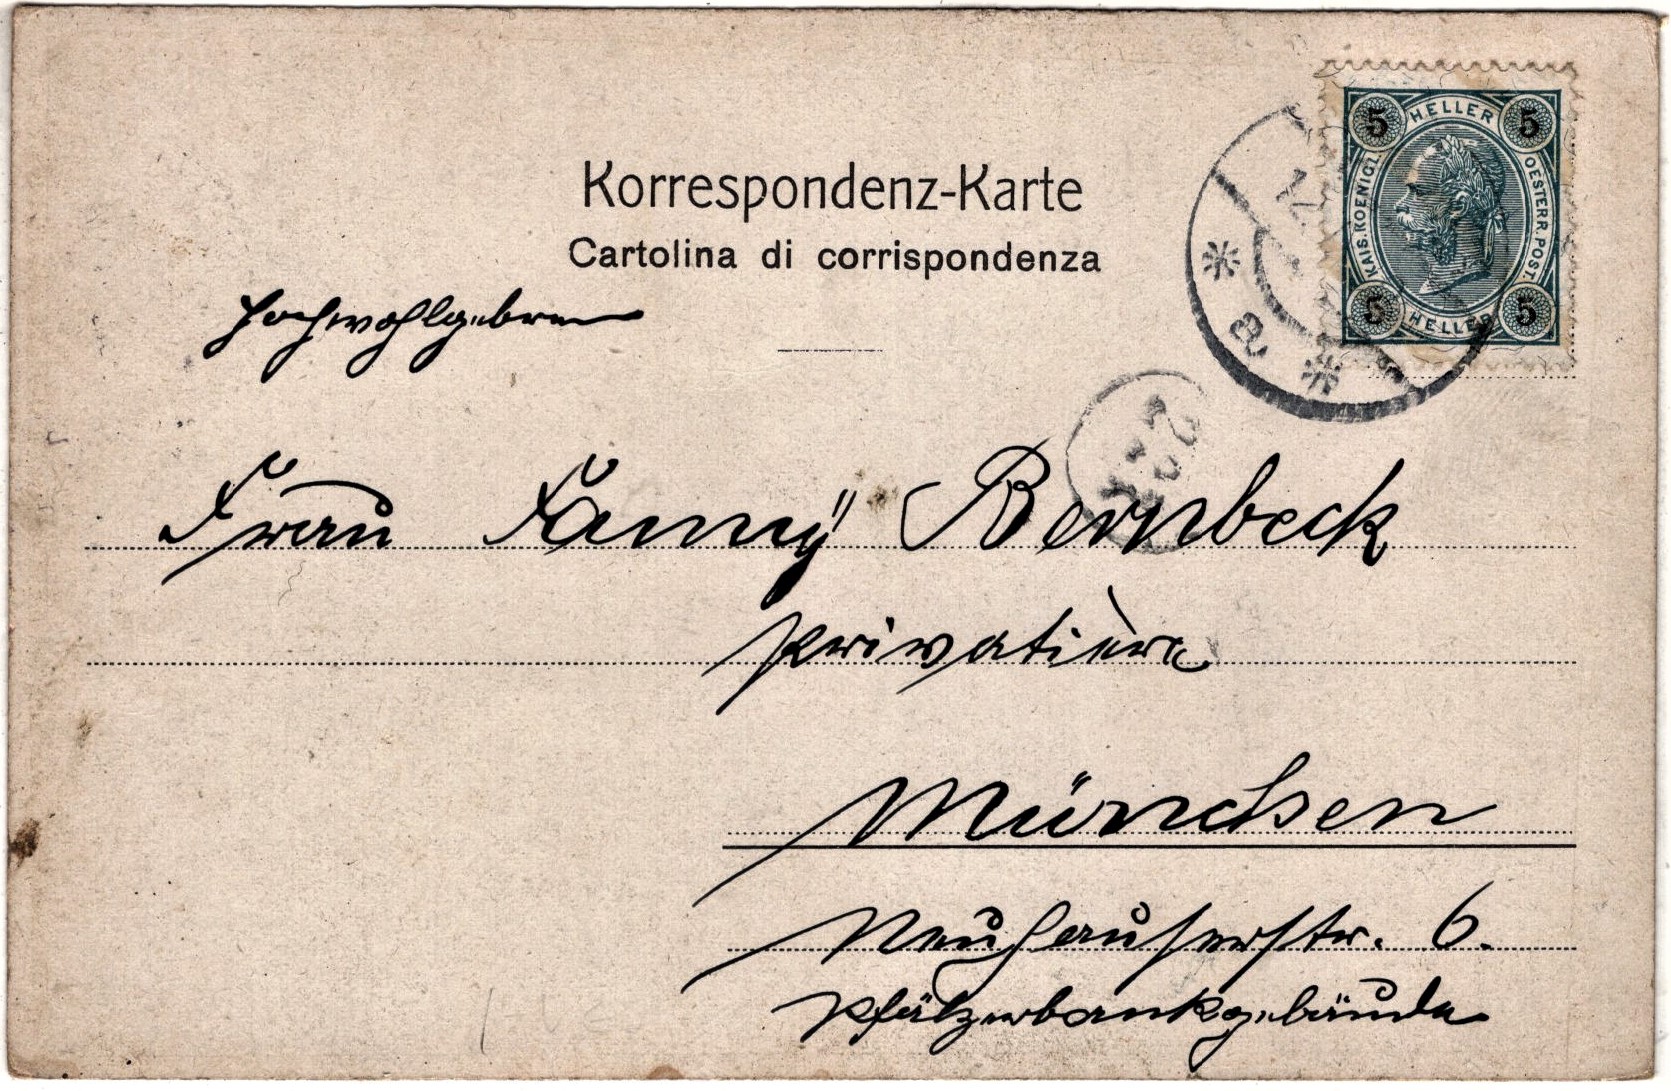 Korrespondenz-Karte
Cartolina di corrispondenza
5 HELLER 5
KAIS. KOENIGL. OESTERR. POST.
5 HELLER 5
Hochwohlgeboren
Frau Fanny Bernbeck
Privatière
München
Neuhauserstr. 6.
Pfälzerbankgebäude